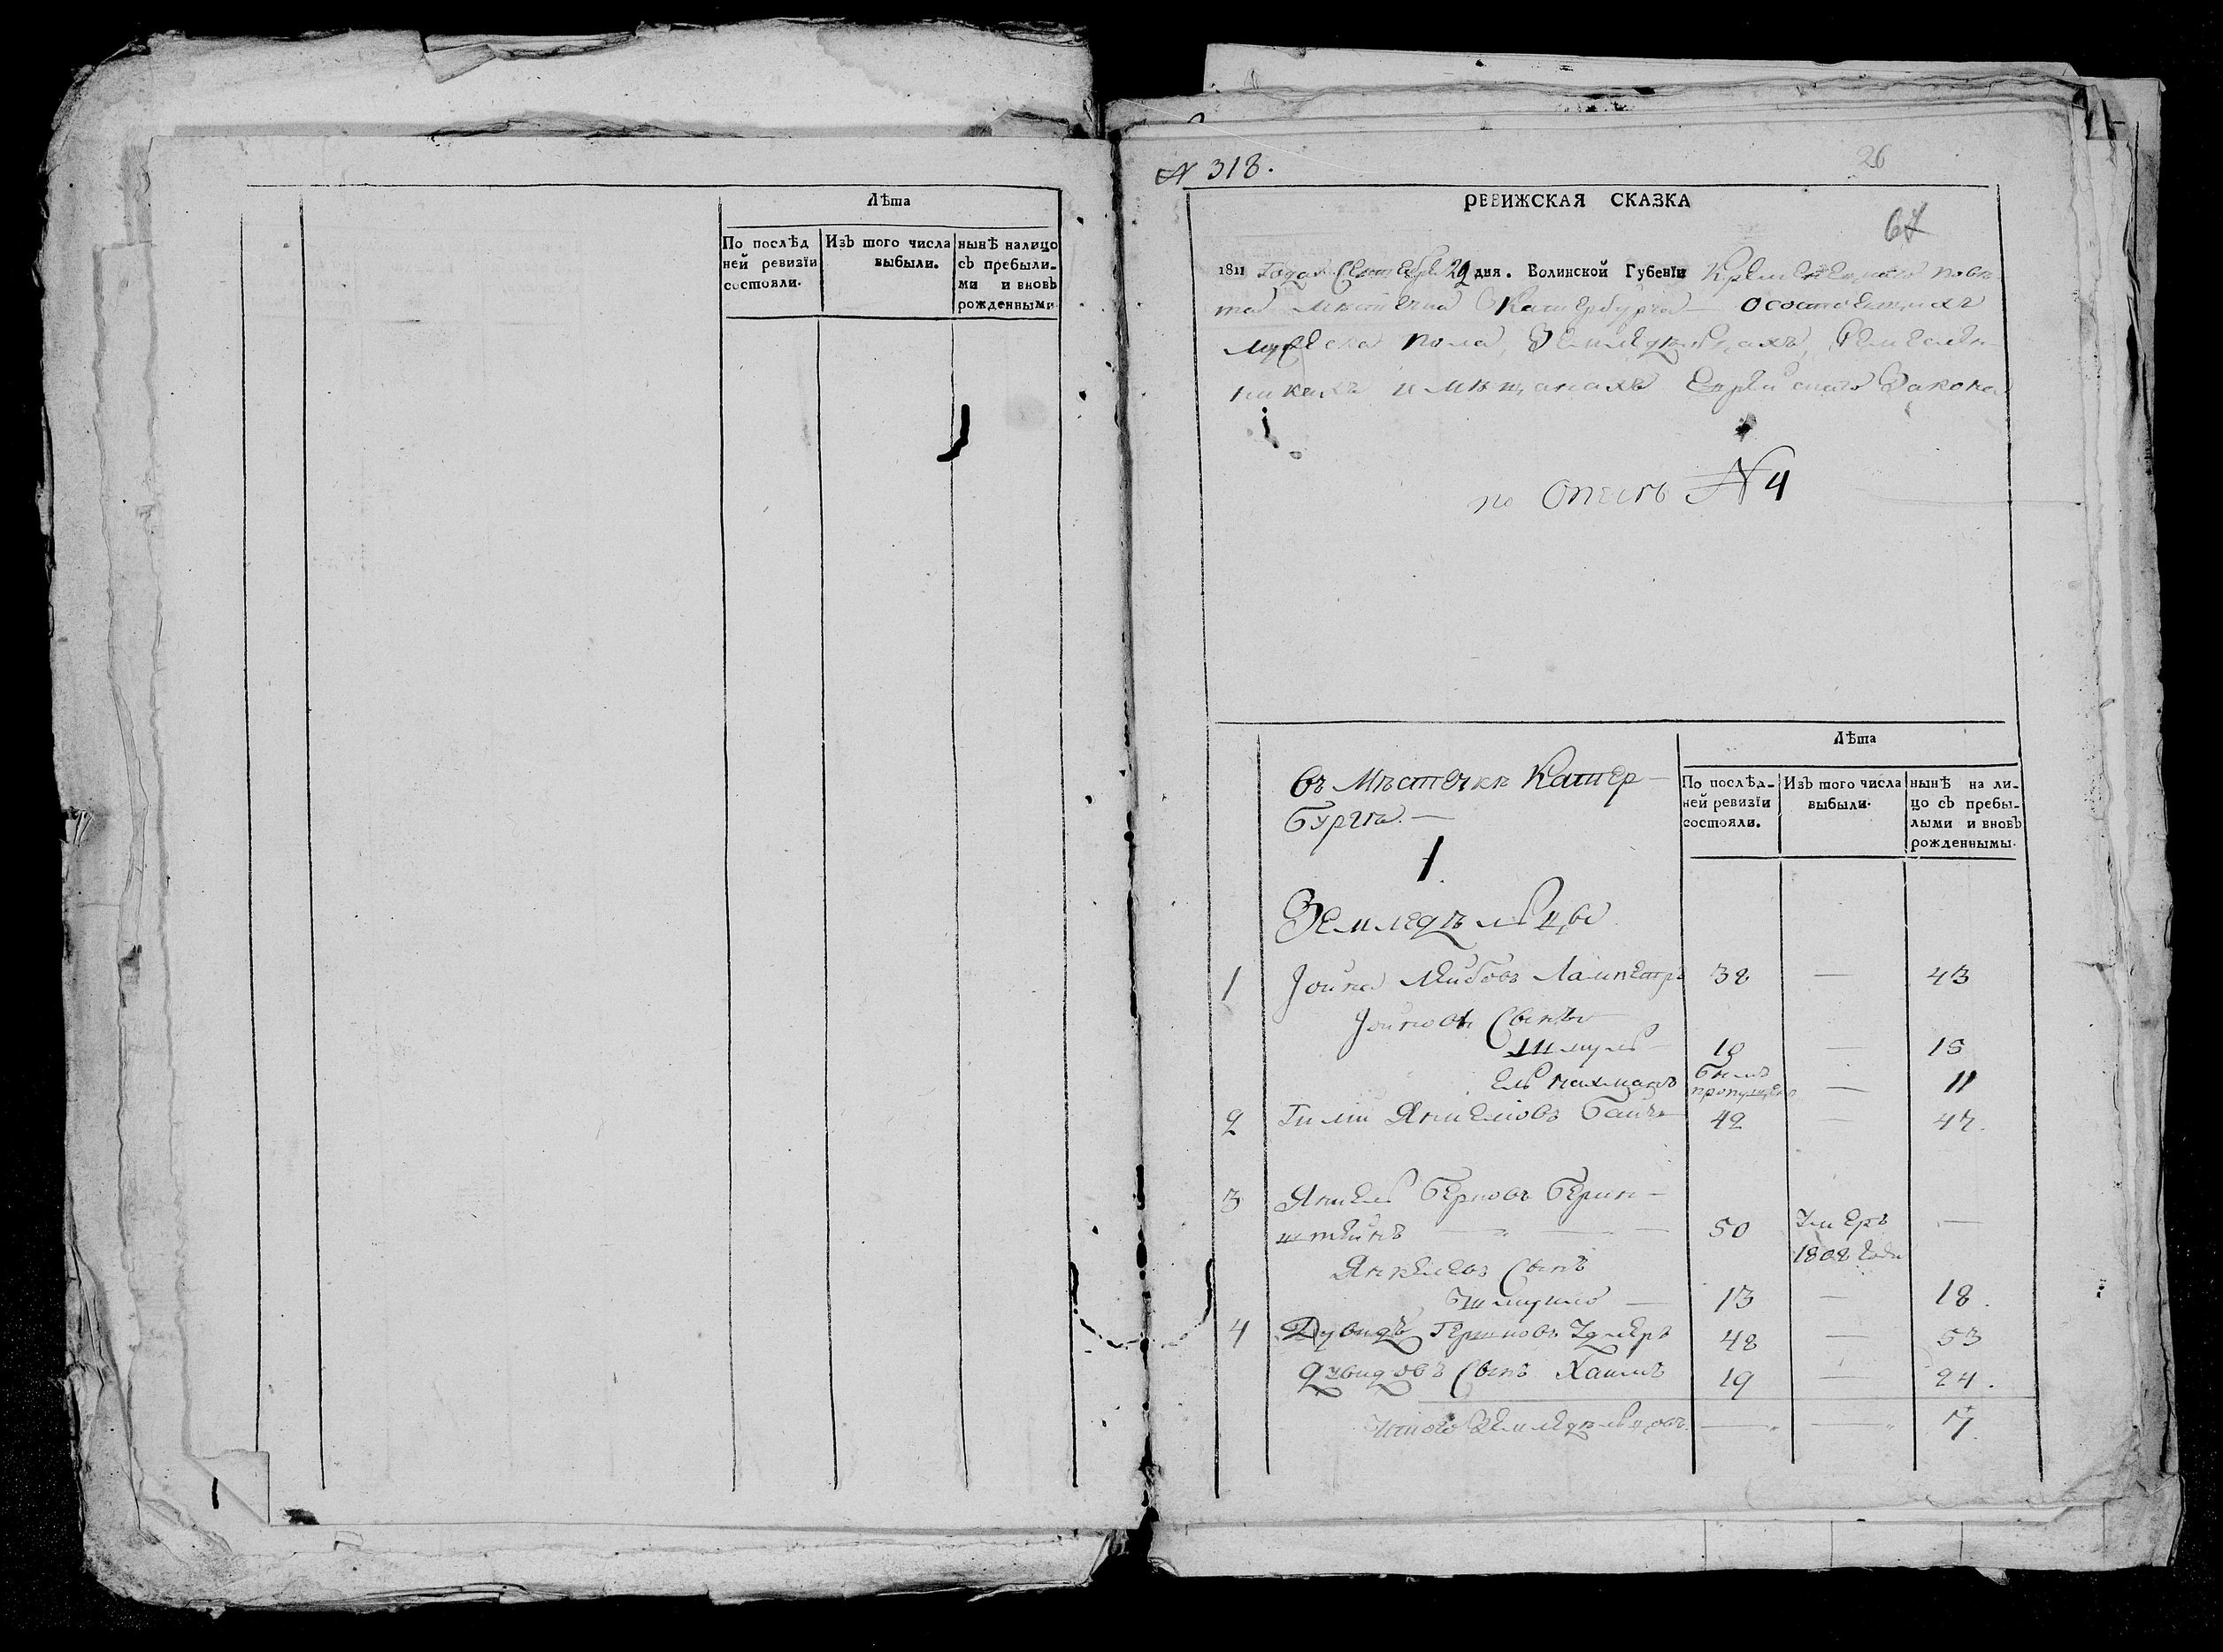 Лѣта
По послѣд
ней ревизїи
состояли.
Изъ того числа
выбыли.
нынѣ налицо
съ пребыли-
ми и вновь
рожденными
N 318.
26
РЕВИЖСКАЯ СКАЗКА
67
1811 Года Сентебря 29 дня. Волинской Губенїи Кременецкаго повѣ
та мѣстечка Катербурга о состоящихъ
мужеска пола, Земледѣльцахъ, Ремеслен-
никахъ и мѣщанахъ Еврейскаго Закона
по описѣ N 4
Лѣта
въ Мѣстечкѣ Катер-
бурга.
По послѣд-
ней ревизїи
состояли.
Изъ того числа
выбыли.
нынѣ на ли-
цо съ пребы-
лыми и вновь
рожденнымы.
1
Земледѣльцы
1 Іойна Лейбовъ 38 — 43
Іойновы Сыны
Шмуль 10 — 15
Ель Нахманъ былъ пропущенъ — 11
2 Янкелювъ 42 — 47.
3 Янкель Берковъ Берин-
штейнъ — 50 Умеръ —
1808 года
Янкелевъ Сынъ
Шмуль — 13 — 18.
4 Дувидъ Гершковъ 48 — 53
Дувидовъ Сынъ Хаимъ 19 — 24.
Итого Земледѣльцовъ — — 7.